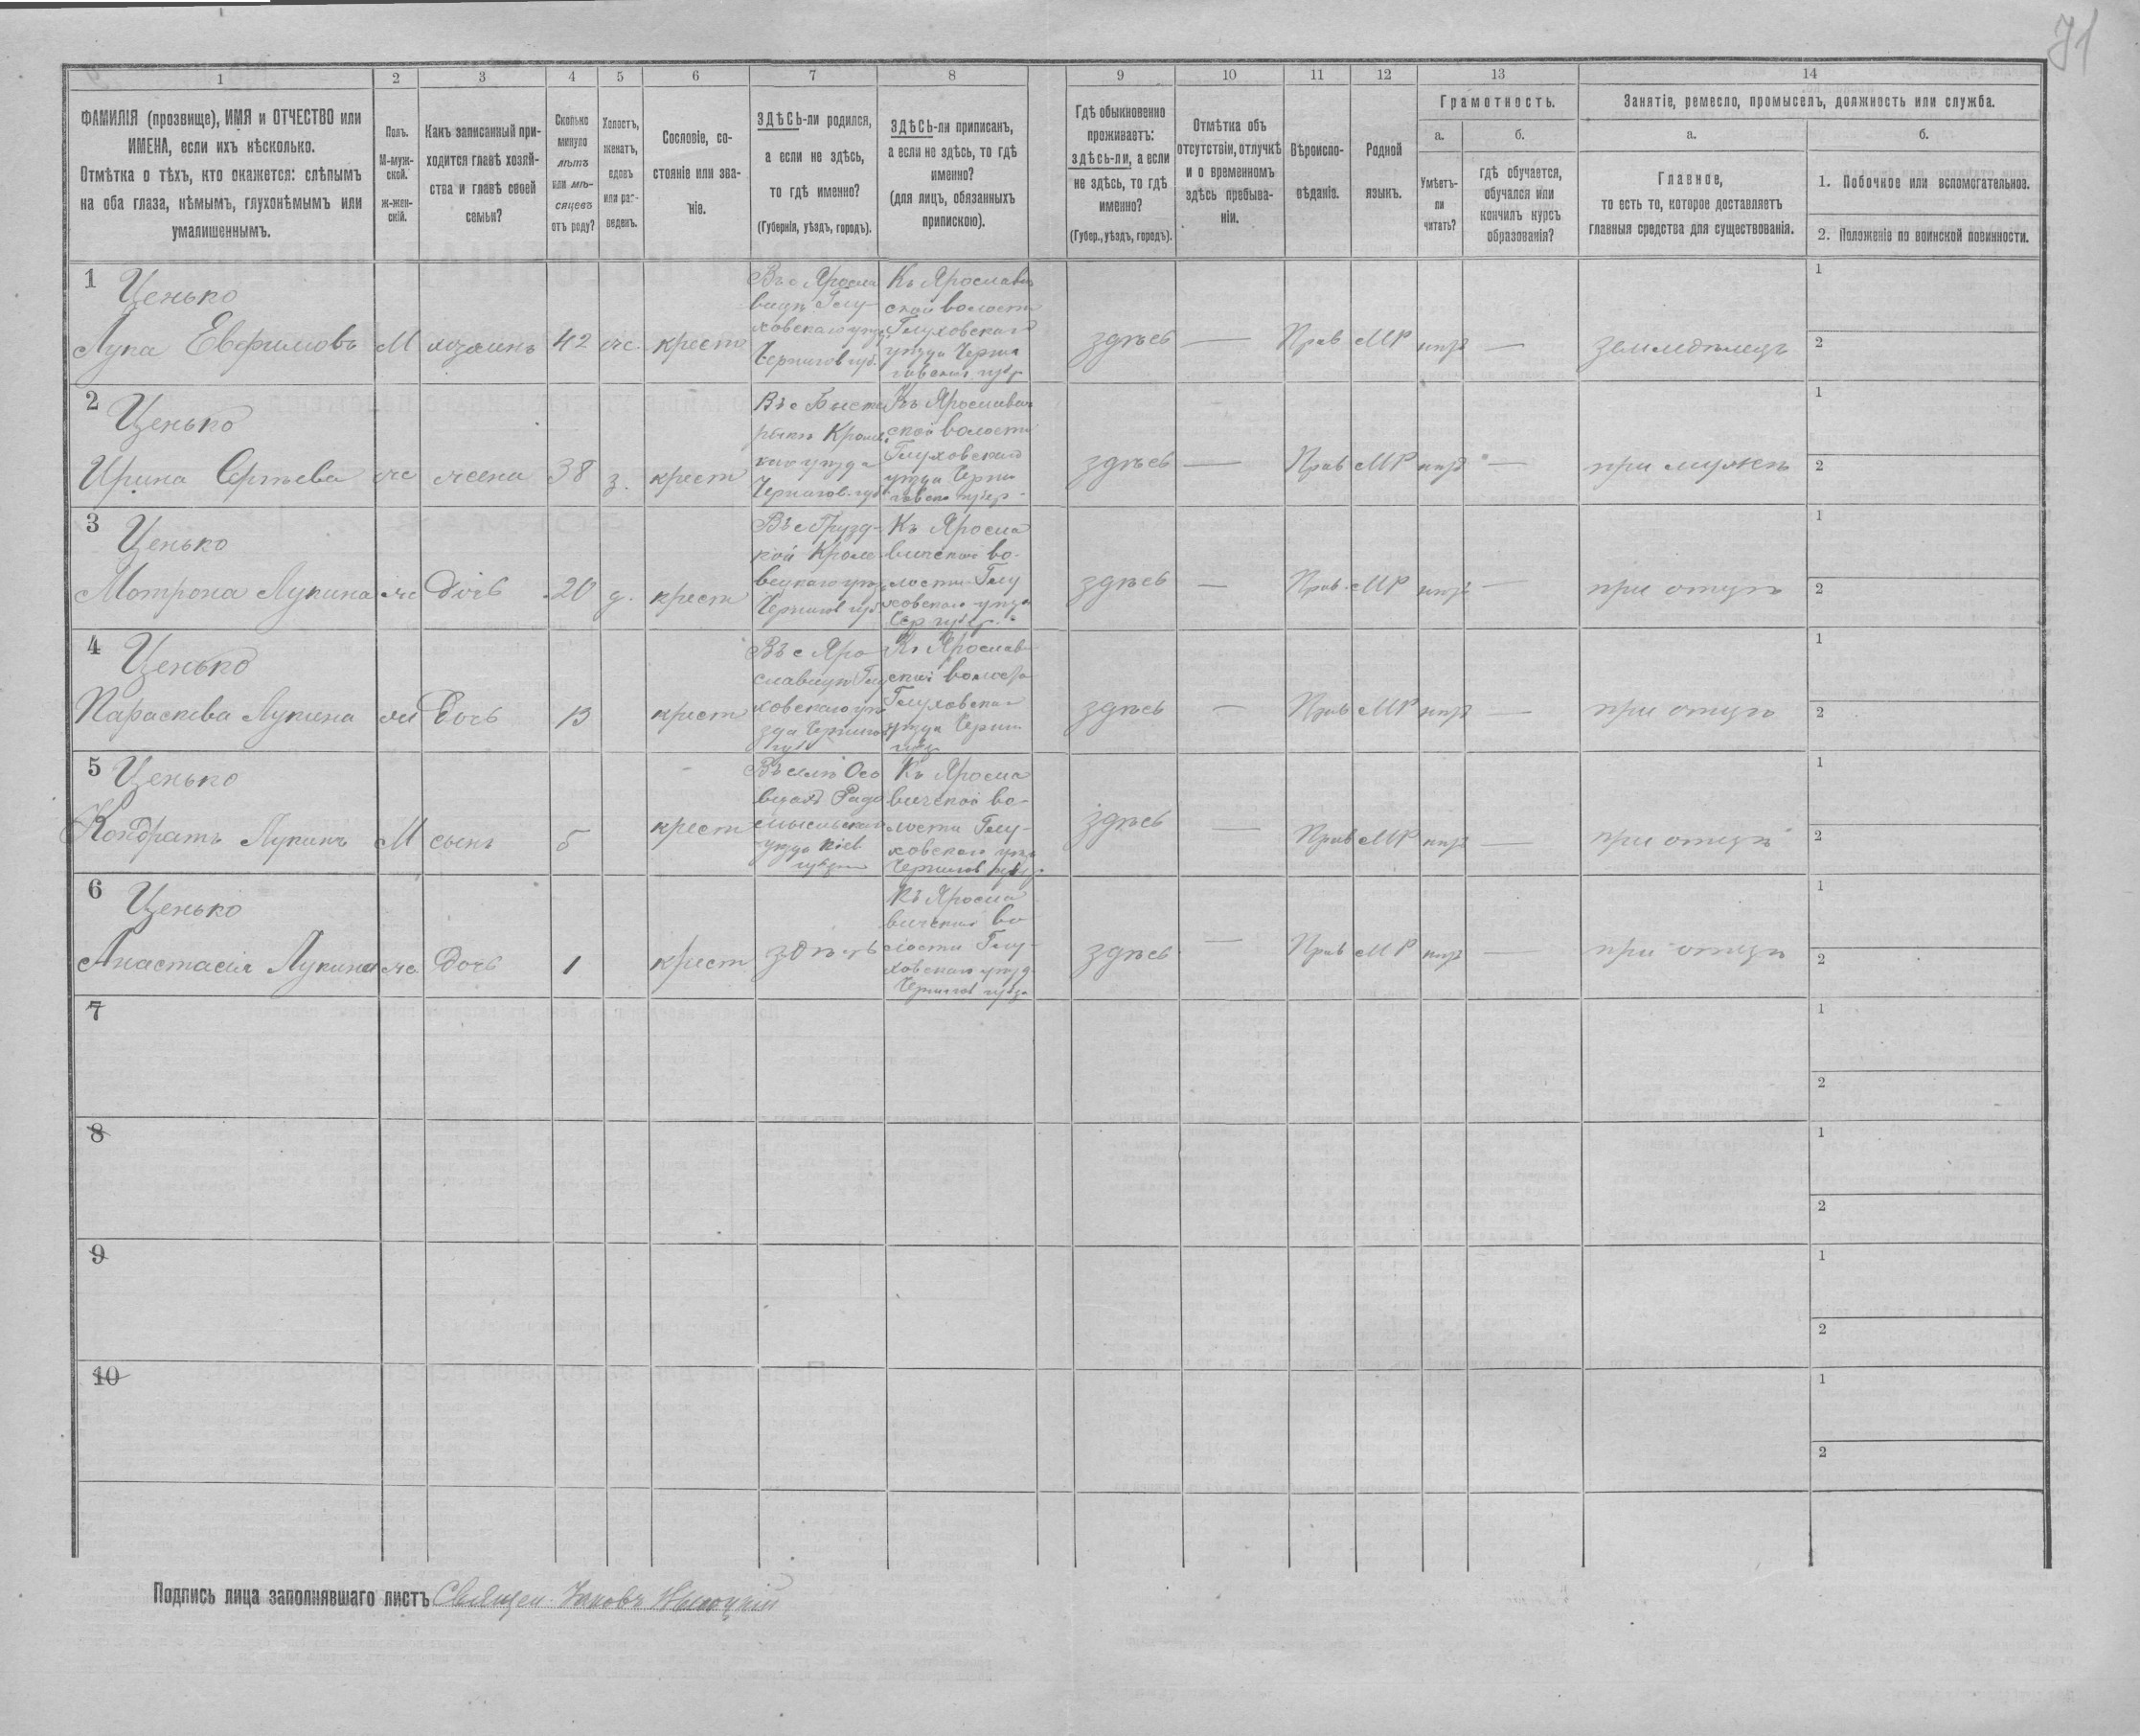 71
1 2 3 4 5 6 7 8 9 10 11 12 13 14
ФАМИЛІЯ (прозвище), ИМЯ и ОТЧЕСТВО или
ИМЕНА, если ихъ нѣсколько.
Отмѣтка о тѣхъ, кто окажется: слѣпымъ
на оба глаза, нѣмымъ, глухонѣмымъ или
умалишеннымъ.
Полъ.
М-муж-
ской.
ж-жен-
скій.
Какъ записанный при-
ходится главѣ хозяй-
ства и главѣ своей
семьи?
Сколько
минуло
лѣтъ
или мѣ-
сяцевъ
отъ роду?
Холостъ,
женатъ,
вдовъ
или раз-
веденъ.
Сословіе, со-
стояніе или зва-
ніе.
ЗДѢСЬ-ли родился,
а если не здѣсь,
то гдѣ именно?
(Губернія, уѣздъ, городъ).
ЗДѢСЬ-ли приписанъ,
а если не здѣсь, то гдѣ
именно?
(для лицъ, обязанныхъ
припискою).
Гдѣ обыкновенно
проживаетъ:
здѣсь-ли, а если
не здѣсь, то гдѣ
именно?
(Губер., уѣздъ, городъ).
Отмѣтка объ
отсутствіи, отлучкѣ
и о временномъ
здѣсь пребыва-
ніи.
Вѣроиспо-
вѣданіе.
Родной
языкъ.
Грамотность.
а. б.
Умѣетъ-
ли
читать?
гдѣ обучается,
обучался или
кончилъ курсъ
образованія?
Занятіе, ремесло, промыселъ, должность или служба.
а. б.
Главное,
то есть то, которое доставляетъ
главныя средства для существованія.
1. Побочное или вспомогательное.
2. Положеніе по воинской повинности.
1 Ценько
Лука Евфимовъ М хозяинъ 42 ж. крест
Въ с Яросла
вицъ Глу-
ховскаго уѣзд
Чернигов губ.
Къ Ярослави
ской волости
Глуховскаго
уѣзда Черни
говской губ
здѣсь — Прав МР — земледѣлецъ
1
2
2 Ценько
Ирина Сергѣева ж жена 38 з. крест
Къ Ярославич
ской волости
Глуховскаго
уѣзда Черни
здѣсь — Прав МР — при мужѣ
1
2
3 Ценько
Мотрона Лукина ж Дочь 20 д. крест
Въ с Грузд-
кой Кроле
вецкаго уѣз
Чернигов губ
Къ Яросла
вичской во-
лости Глу
ховскаго уѣзда
Чер губер.
здѣсь — Прав. МР — при отцѣ
1
2
4 Ценько
Параскева Лукина ж Дочь 13 крест
Въ с Яро
славицъ Глу
ховскаго уѣ
зда Чернигов
губ
Къ Ярослав
ской волости
Глуховскаго
уѣзда Черни
здѣсь — Прав МР — при отцѣ
1
2
5 Ценько
Кондратъ Лукинъ М сынъ 5 крест
Радо
мысльскаго
уѣзда Кіев
Къ Яросла
вичской во-
лости Глу-
ховскаго уѣзд
Чернигов губ.
здѣсь — Прав МР — при отцѣ
1
2
6 Ценько
Анастасія Лукина ж. Дочь 1 крест здѣсь
Къ Яросла
вичской во
лости Глу-
ховскаго уѣзд
Чернигов губ
здѣсь — Прав МР — при отцѣ
1
2
7 1
2
8 1
2
9 1
2
10 1
2
Подпись лица заполнявшаго листъ Священ. Іаковъ